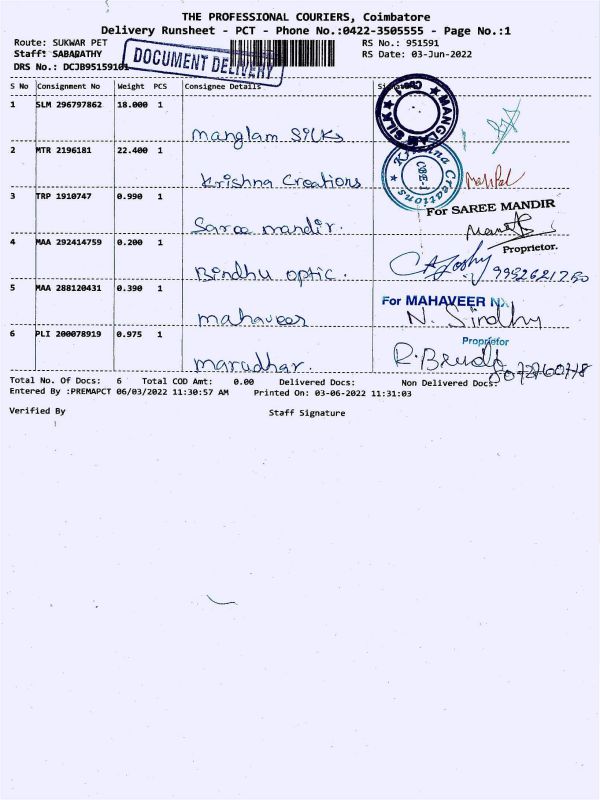 THE PROFESSIONAL COURIERS, Coimbatore
Delivery Runsheet - PCT - Phone No.:0422-3505555 - Page No.:1
Route: SUKWAR PET RS No.: 951591
Staff: SABABATHY RS Date: 03-Jun-2022
DRS No.: DCJB95159101
DOCUMENT DELIVERY
S No Consignment No Weight PCS Consignee Details Signature
1 SLM 296797862 18.000 1 manglam Silks
MANGLAM SILK
2 MTR 2196181 22.400 1 Krishna Creations
Krishna Creations CBE-1
3 TRP 1910747 0.990 1 Saree mandir.
For SAREE MANDIR
Proprietor.
4 MAA 292414759 0.200 1 Bindhu optic.
9952621750
5 MAA 288120431 0.390 1 mahaveer
For MAHAVEER
N. Sindhu
Proprietor
6 PLI 200078919 0.975 1 marudhar.
Total No. Of Docs: 6 Total COD Amt: 0.00 Delivered Docs: Non Delivered Docs:
Entered By :PREMAPCT 06/03/2022 11:30:57 AM Printed On: 03-06-2022 11:31:03
Verified By Staff Signature